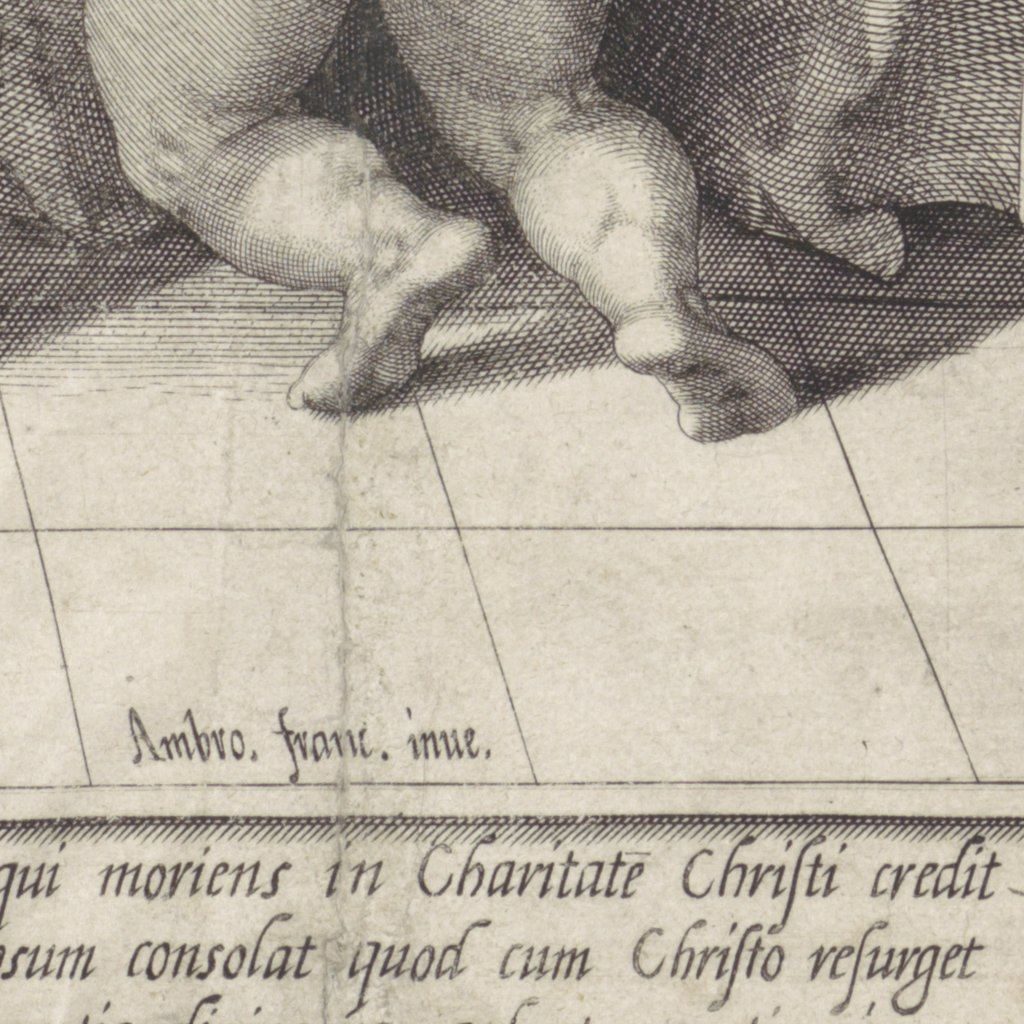 Ambro. franc. inue.
qui moriens in Charitatē Chriſti credit
consolat quod cum Chriſto reſurget